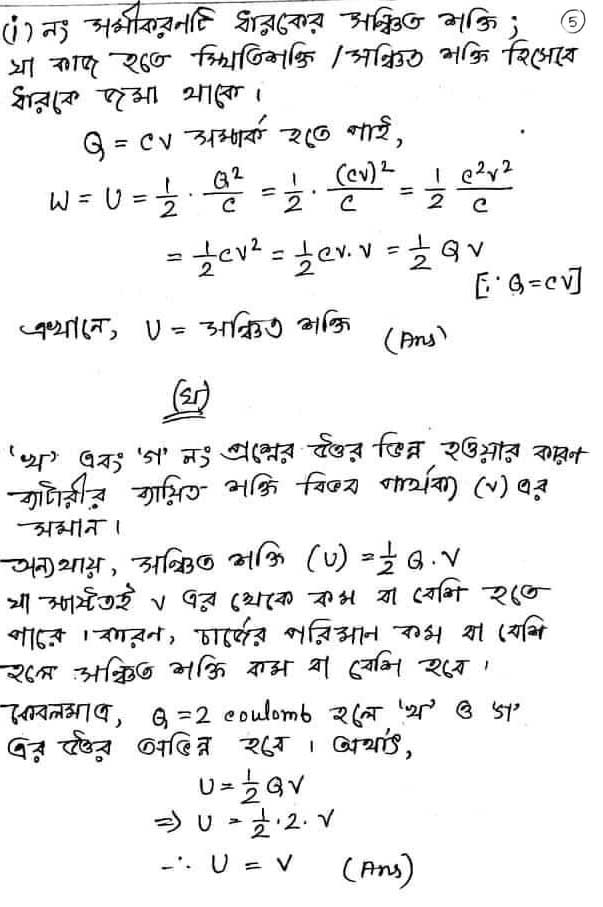 (i) নং সমীকরনটি ধারকের সঞ্চিত শক্তি; ⑤
যা কাজ হতে স্থিতিশক্তি / সঞ্চিত শক্তি হিসেবে
ধারকে জমা থাকে।
Q = CV সম্পর্ক হতে পাই,
W = U = 1/2 · Q²/C = 1/2 · (CV)²/C = 1/2 C²V²/C
= 1/2 CV² = 1/2 CV. V = 1/2 QV
[∵ Q = CV]
এখানে, U = সঞ্চিত শক্তি (Ans)
(ঘ)
'খ' এবং 'গ' নং প্রশ্নের উত্তর ভিন্ন হওয়ার কারণ
ব্যাটারীর ব্যয়িত শক্তি বিভব পার্থক্য (V) এর
সমান।
অন্যথায়, সঞ্চিত শক্তি (U) = 1/2 Q. V
যা V এর থেকে কম বা বেশি হতে
পারে। কারন, চার্জের পরিমান কম বা বেশি
হলে সঞ্চিত শক্তি কম বা বেশি হবে।
কেবলমাত্র, Q = 2 coulomb হলে 'খ' ও 'গ'
এর উত্তর অভিন্ন হবে। অর্থাৎ,
U = 1/2 QV
⇒ U = 1/2 · 2. V
∴ U = V (Ans)